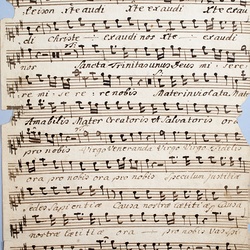 leison xte audi Xte exaudi Xte exau
di Christe exaudi nos xte exaudi
nos Sancta Trinitas unus Deus mi: sere:
re mi: se re: re nobis Mater inviolata, Mate
Amabilis Mater Creatoris et Salvatoris ora
pro nobis Virgo Veneranda Virgo Virgo
ora pro nobis ora pro nobis Speculum justitiae
edes Sapientiae Causa nostrae laetitiae Causa
nostrae laetitiae ora pro nobis Vas spi